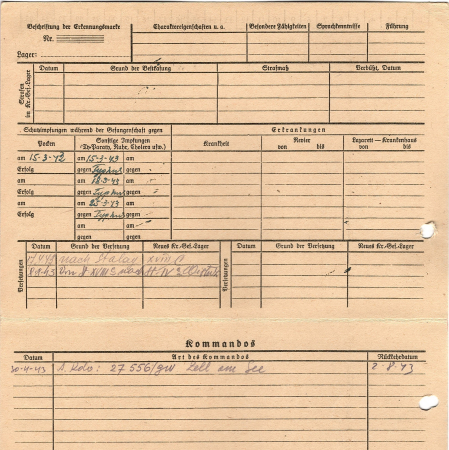 Beschriftung der Erkennungsmarke
Nr.
Lager:
Charaktereigenschaften u. a.
Besondere Fähigkeiten
Sprachkenntnisse
Führung
Strafen im Kr.-Gef.-Lager
Datum
Grund der Bestrafung
Strafmaß
Verbüßt, Datum
Schutzimpfungen während der Gefangenschaft gegen
Erkrankungen
Pocken
Sonstige Impfungen
(Ty-Paraty, Ruhr, Cholera usw.)
Krankheit
Revier
von bis
Lazarett — Krankenhaus
von bis
am 15-3-42 am 15-3-43 am
Erfolg gegen Typhus gegen
am am am
Erfolg gegen Typhus gegen
am am am
Erfolg gegen Typhus gegen
am am
gegen gegen
Versetzungen
Datum
Grund der Versetzung
Neues Kr.-Gef.-Lager
nach Stalag XVIII
Versetzungen
Datum
Grund der Versetzung
Neues Kr.-Gef.-Lager
Kommandos
Datum
Art des Kommandos
Rückkehrdatum
30-4-43 A. Kdo: 27556/gw Zell am See 2-8-43